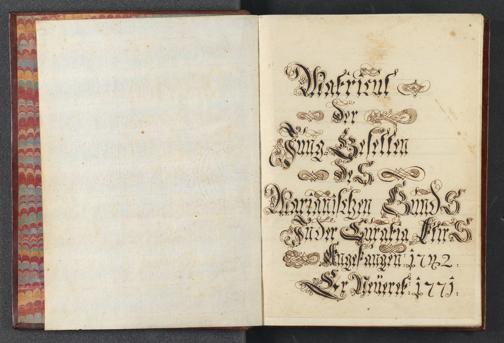 Matricul
der
Jung Gesellen
des
Marianischen Bunds
In der Curatia
Angefangen 1742.
Er Neüeret 1771.